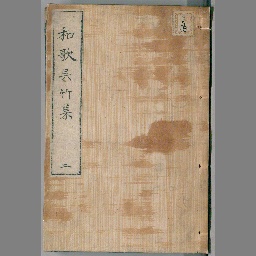 和歌呉竹集
二